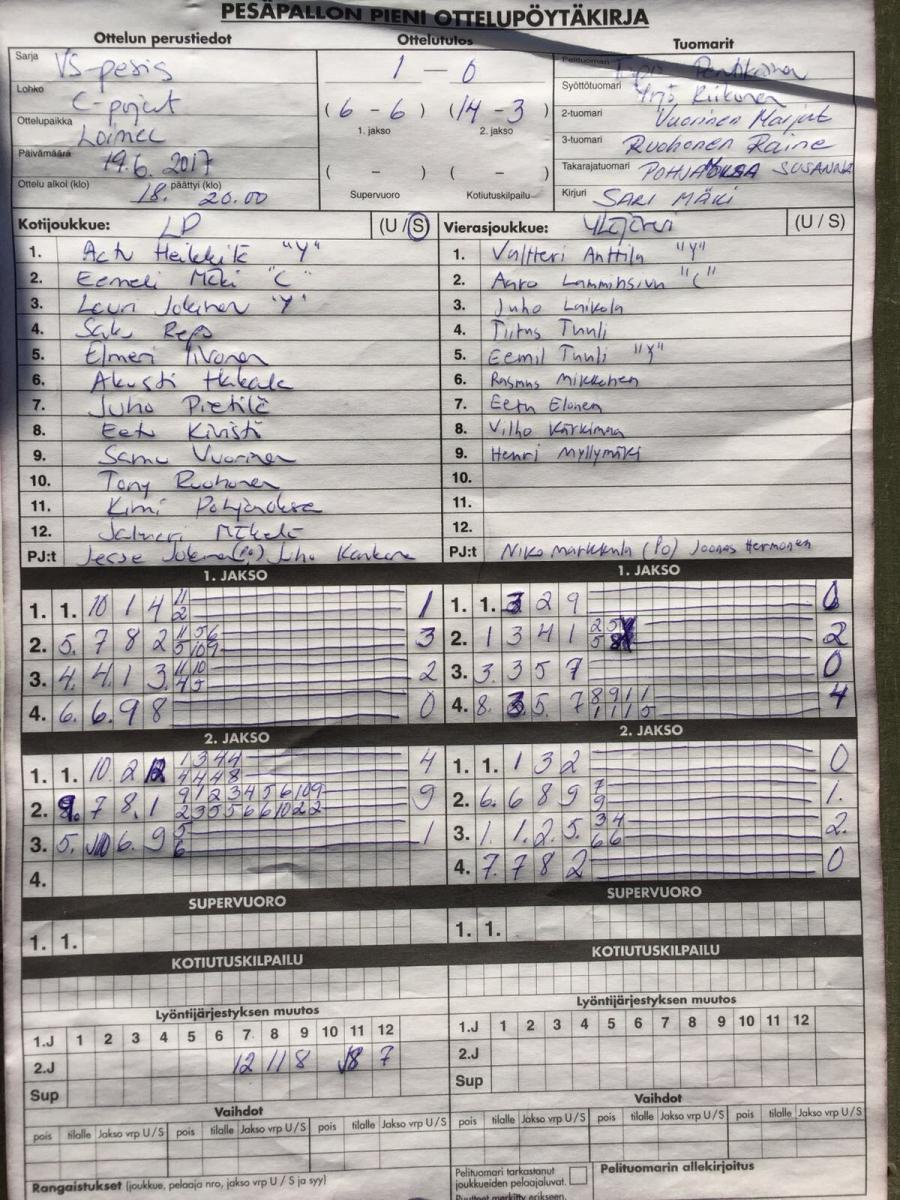 PESÄPALLON PIENI OTTELUPÖYTÄKIRJA
Ottelun perustiedot
Ottelutulos
Tuomarit
Sarja VS-pesis
1 - 0
Pelituomari
Lohko C-pojat
Syöttötuomari Yrjö Riikonen
(6 - 6) (14 - 3)
1. jakso 2. jakso
Ottelupaikka Loimec
2-tuomari Vuorinen Marjut
Päivämäärä 19.6.2017
3-tuomari Ruohonen Raine
( - ) ( - )
Takarajatuomari POHJANOKSA SUSANNA
Ottelu alkoi (klo) 18. päättyi (klo) 20.00
Supervuoro Kotiutuskilpailu
Kirjuri SARI MÄKI
Kotijoukkue: LP (U / S)
Vierasjoukkue: Ylöjärvi (U / S)
1. Actu Heikkilä "Y"
1. Valtteri Anttila "Y"
2. Eemeli Mäki "C"
2. Aaro Lamminsivu "C"
3. Lauri Jokinen "Y"
3. Juho Laikola
4. Saku Repo
4. Tiitus Tuuli
5. Elmeri Iivonen
5. Eemil Tuuli "Y"
6. Akusti Hakala
6. Rasmus Mikkonen
7. Juho Pietilä
7. Eetu Elonen
8. Eetu Kivistö
8. Vilho Kärkimaa
9. Samu Vuorinen
9. Henri Myllymäki
10. Tony Ruohonen
10.
11. Kimi Pohjanoksa
11.
12. Jalmari Mikelä
12.
PJ:t Jesse Jokinen (PJ) Juho Kankare
PJ:t Niko Markkula (PJ) Joonas Hermonen
1. JAKSO
1. JAKSO
1. 1. 10 1 4 11 1
2
1. 1. 3 2 9 0
2. 5. 7 8 2 11 5 6 3
5 10 9
2. 1 3 4 1 2 5 2
5 8
3. 4. 4 1 3 11 10 2
4 5
3. 3. 3 5 7 0
4. 6. 6. 9 8 0
4. 8. 3. 5. 7 8 9 1 1 4
1 1 1 5
2. JAKSO
2. JAKSO
1. 1. 10. 2 12 1 3 4 4 4
4 4 4 8
1. 1. 1 3 2 0
2. 9. 7 8. 1 9 1 2 3 4 5 6 10 9 9
2 3 5 5 6 6 10 2 2
2. 6. 6 8 9 7 1.
9
3. 5. 10 6. 9 5 1
6
3. 1. 1. 2. 5. 3 4 2.
6 6
4.
4. 7. 7 8 2 0
SUPERVUORO
SUPERVUORO
1. 1.
1. 1.
KOTIUTUSKILPAILU
KOTIUTUSKILPAILU
Lyöntijärjestyksen muutos
Lyöntijärjestyksen muutos
1.J 1 2 3 4 5 6 7 8 9 10 11 12
1.J 1 2 3 4 5 6 7 8 9 10 11 12
2.J 12 11 8 7
2.J
Sup
Sup
Vaihdot
Vaihdot
pois tilalle Jakso vrp U / S pois tilalle Jakso vrp U / S pois tilalle Jakso vrp U / S
pois tilalle Jakso vrp U / S pois tilalle Jakso vrp U / S pois tilalle Jakso vrp U / S
Rangaistukset (joukkue, pelaaja nro, jakso vrp U / S ja syy)
Pelituomari tarkastanut
joukkueiden pelaajaluvat.
Puutteet merkitty erikseen.
Pelituomarin allekirjoitus